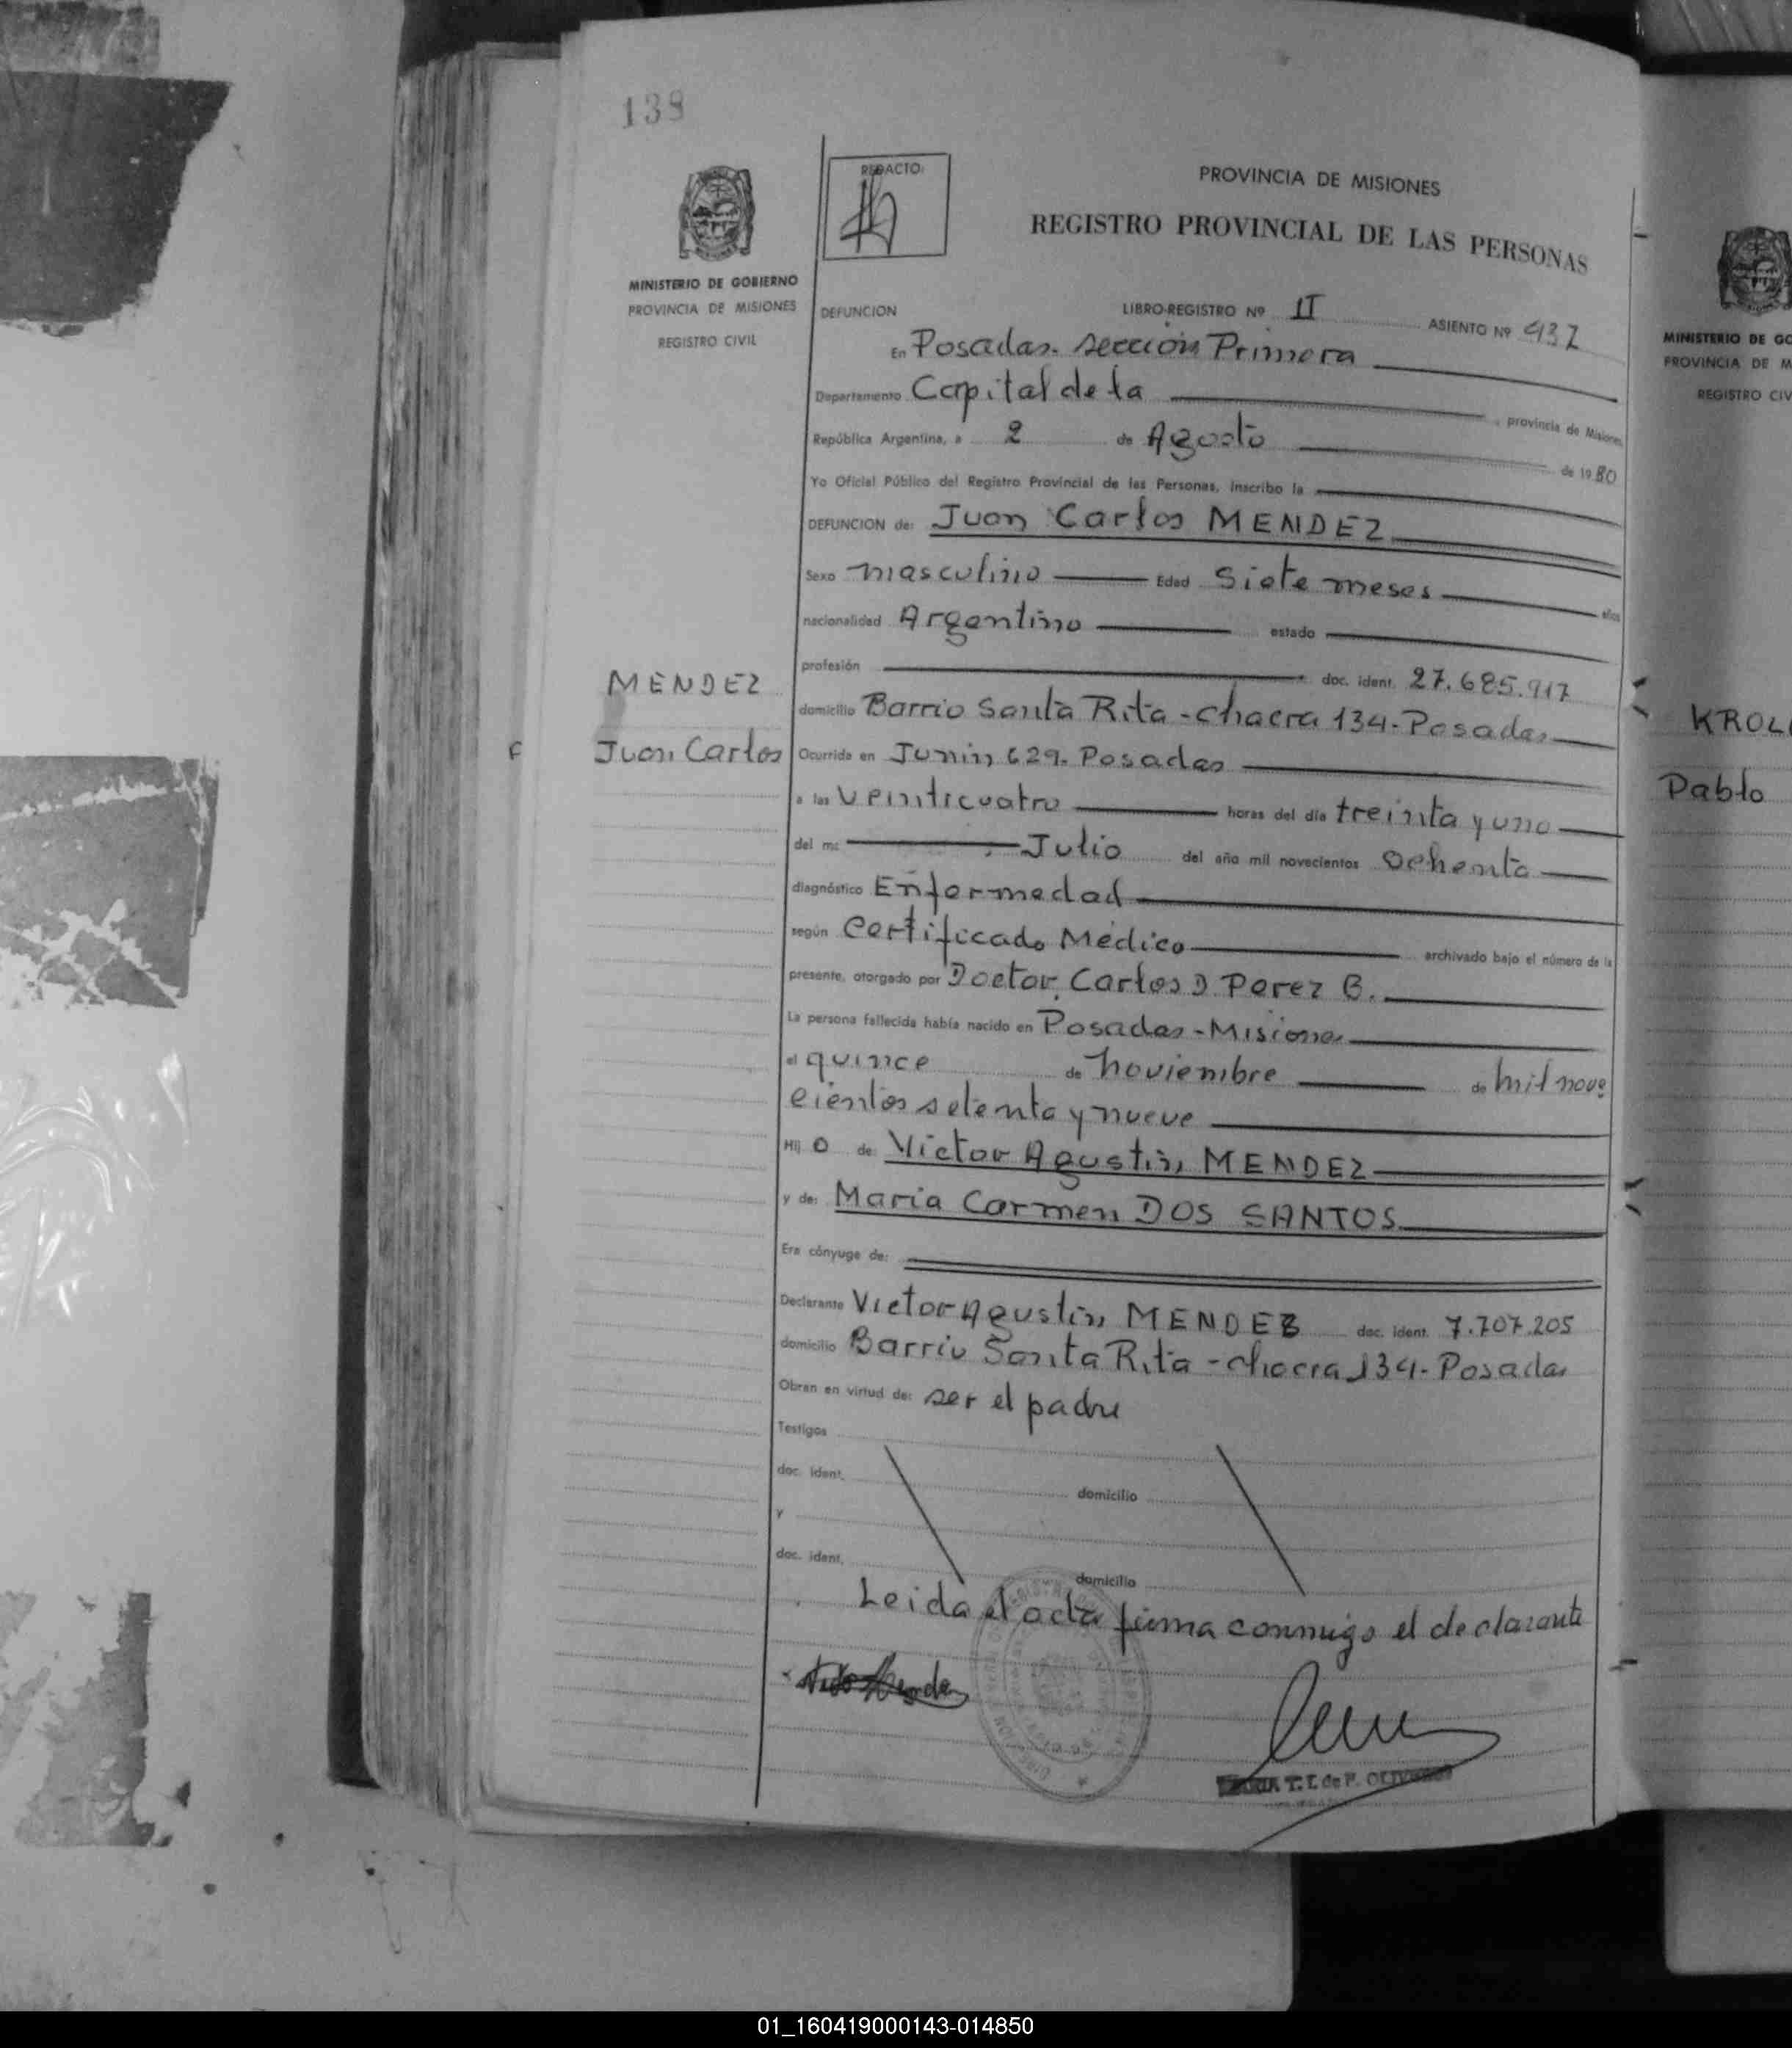 138
REDACTO:
PROVINCIA DE MISIONES
REGISTRO PROVINCIAL DE LAS PERSONAS
MINISTERIO DE GOBIERNO
PROVINCIA DE MISIONES
REGISTRO CIVIL
DEFUNCION LIBRO-REGISTRO Nº II ASIENTO Nº 437
En Posadas. sección Primera
Departamento Capital de la , provincia de Misiones
República Argentina, a 2 de Agosto de 1980
Yo Oficial Público del Registro Provincial de las Personas, inscribo la
DEFUNCION de: Juan Carlos MENDEZ
Sexo masculino Edad Siete meses años
nacionalidad Argentino estado
profesión doc. ident. 27.685.917
MENDEZ
Juan Carlos
domicilio Barrio Santa Rita - chacra 134 - Posadas
Ocurrida en Junin 629. Posadas
a las veinticuatro horas del día treinta y uno
del m: Julio del año mil novecientos ochenta
diagnóstico Enfermedad
según Certificado Médico archivado bajo el número de la
presente, otorgado por Doctor Carlos D. Perez B.
La persona fallecida había nacido en Posadas - Misiones
el quince de noviembre de mil nove
cientos setenta y nueve
Hij o de Victor Agustin MENDEZ
y de: Maria Carmen DOS SANTOS
Era cónyuge de:
Declarante Victor Agustin MENDEZ doc. ident. 7.707.205
domicilio Barrio Santa Rita - chacra 134 - Posadas
Obran en virtud de: ser el padre
Testigos
doc. ident. domicilio
y
doc. ident. domicilio
Leida el acta firma conmigo el declarante
MARIA T. I. de P. OLIVEROS
MINISTERIO DE GO
PROVINCIA DE M
REGISTRO CIV
KROL
Pablo
01_160419000143-014850